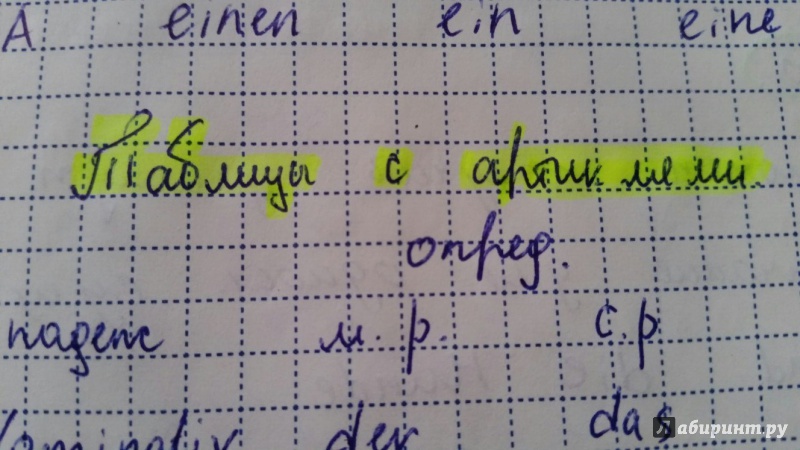 A einen ein eine
Таблицы с артиклями
опред.
падеж м. р. с. р
Nominativ der das
Лабиринт.ру